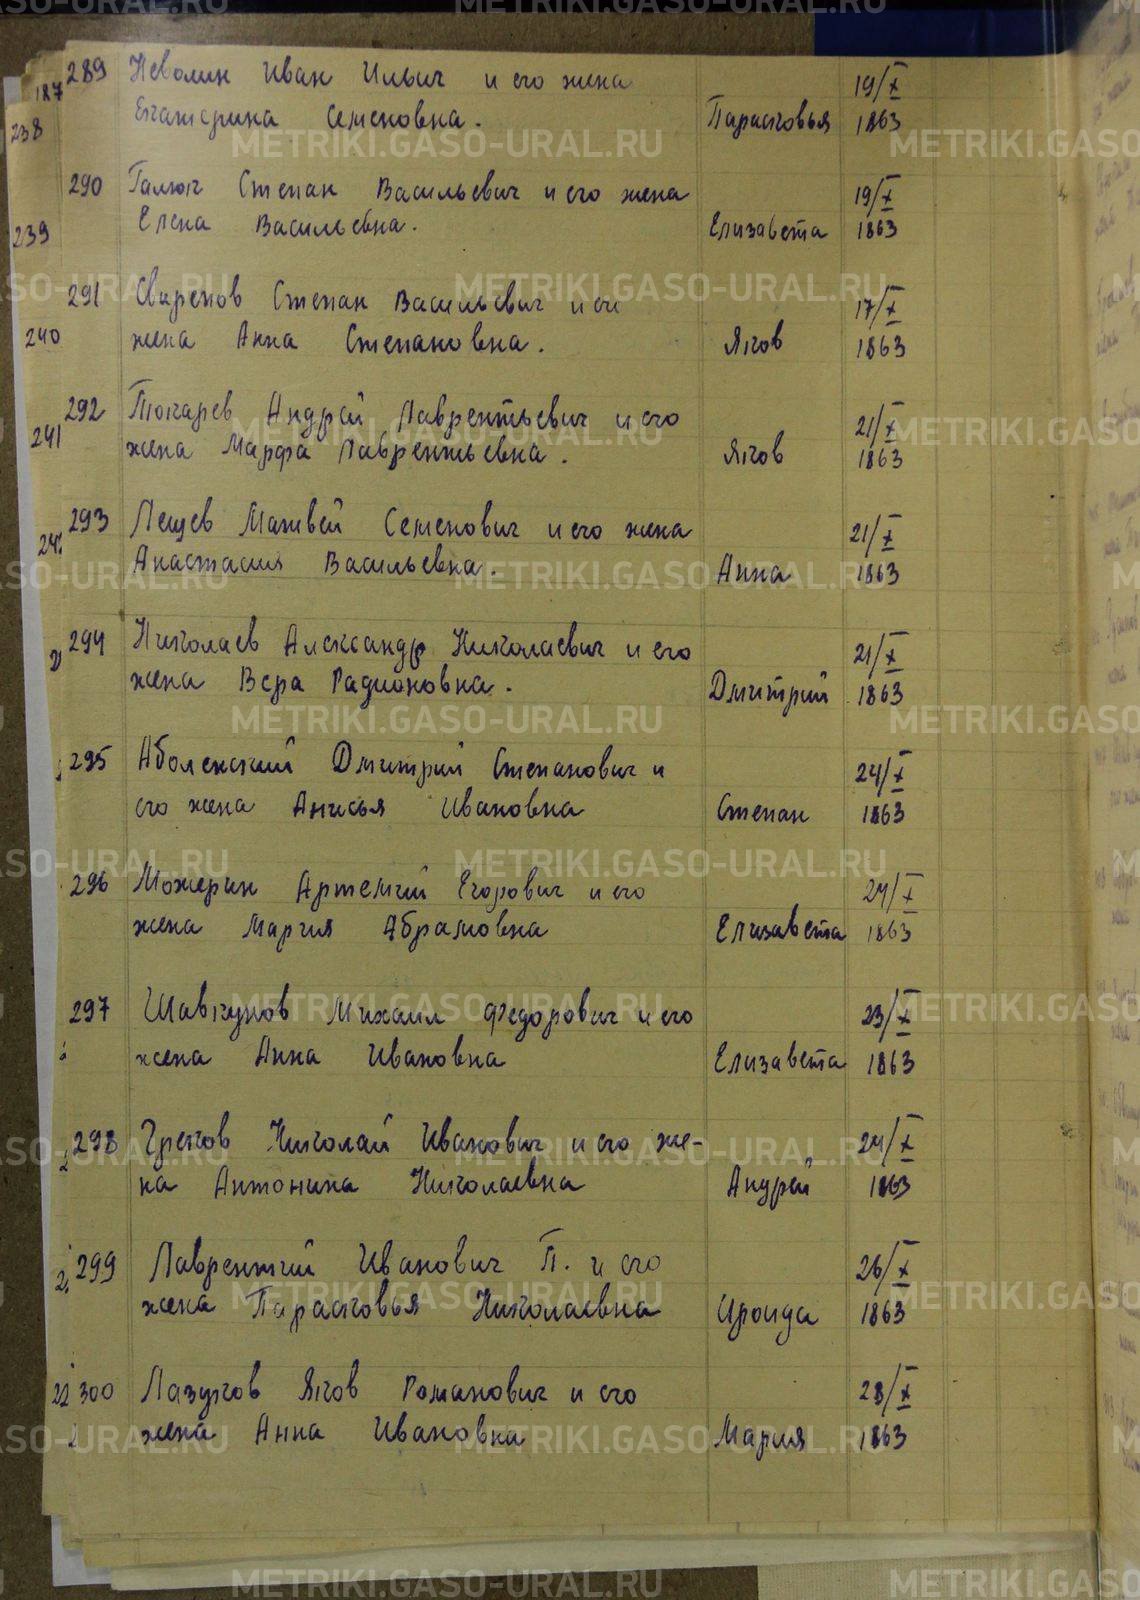 289 Неволин Иван Ильич и его жена 19/X
187
Екатерина Семеновна. Парасковья 1863
238
290 Галюк Степан Васильевич и его жена 19/X
239 Елена Васильевна. Елизавета 1863
291 Свиренов Степан Васильевич и его 17/X
240 жена Анна Степановна. Яков 1863
292 Токарев Андрей Лаврентьевич и его 21/X
241 жена Марфа Лаврентьевна. Яков 1863
293 Лещев Матвей Семенович и его жена 21/X
Анастасия Васильевна. Анна 1863
294 Николаев Александр Николаевич и его 21/X
жена Вера Радионовна. Дмитрий 1863
295 Аболенский Дмитрий Степанович и 24/X
его жена Анисья Ивановна Степан 1863
296 Можерин Артемий Егорович и его 24/X
жена Мария Абрамовна Елизавета 1863
297 Шавкунов Михаил Федорович и его 23/X
жена Анна Ивановна Елизавета 1863
298 Греков Николай Иванович и его же- 24/X
на Антонина Николаевна Андрей 1863
299 Лаврентий Иванович П. и его 26/X
жена Парасковья Николаевна Ироида 1863
300 Лазуков Яков Романович и его 28/X
жена Анна Ивановна Мария 1863
METRIKI.GASO-URAL.RU